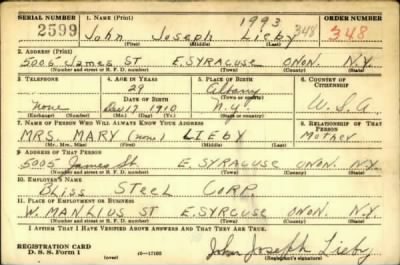 SERIAL NUMBER 1. NAME (Print) ORDER NUMBER
1993
2599 John Joseph Lieby 348 348
(First) (Middle) (Last)
2. ADDRESS (Print)
5005 James ST E. SYRACUSE ONON. N.Y.
(Number and street or R. F. D. number) (Town) (County) (State)
3. TELEPHONE 4. AGE IN YEARS 5. PLACE OF BIRTH 6. COUNTRY OF CITIZENSHIP
29 Albany
DATE OF BIRTH (Town or county)
None Dec 17 1910 N.Y. U.S.A
(Exchange) (Number) (Mo.) (Day) (Yr.) (State or country)
7. NAME OF PERSON WHO WILL ALWAYS KNOW YOUR ADDRESS 8. RELATIONSHIP OF THAT PERSON
MRS. MARY (none) LIEBY Mother
(Mr., Mrs., Miss) (First) (Middle) (Last)
9. ADDRESS OF THAT PERSON
5005 James St E. SYRACUSE ONON. N.Y.
(Number and street or R. F. D. number) (Town) (County) (State)
10. EMPLOYER'S NAME
Bliss STEEL CORP
11. PLACE OF EMPLOYMENT OR BUSINESS
W. MANLIUS ST E. SYRCUSE ONON. N.Y.
(Number and street or R. F. D. number) (Town) (County) (State)
I AFFIRM THAT I HAVE VERIFIED ABOVE ANSWERS AND THAT THEY ARE TRUE.
REGISTRATION CARD
D. S. S. Form 1 (over) 16-17105 John Joseph Lieby
(Registrant's signature)